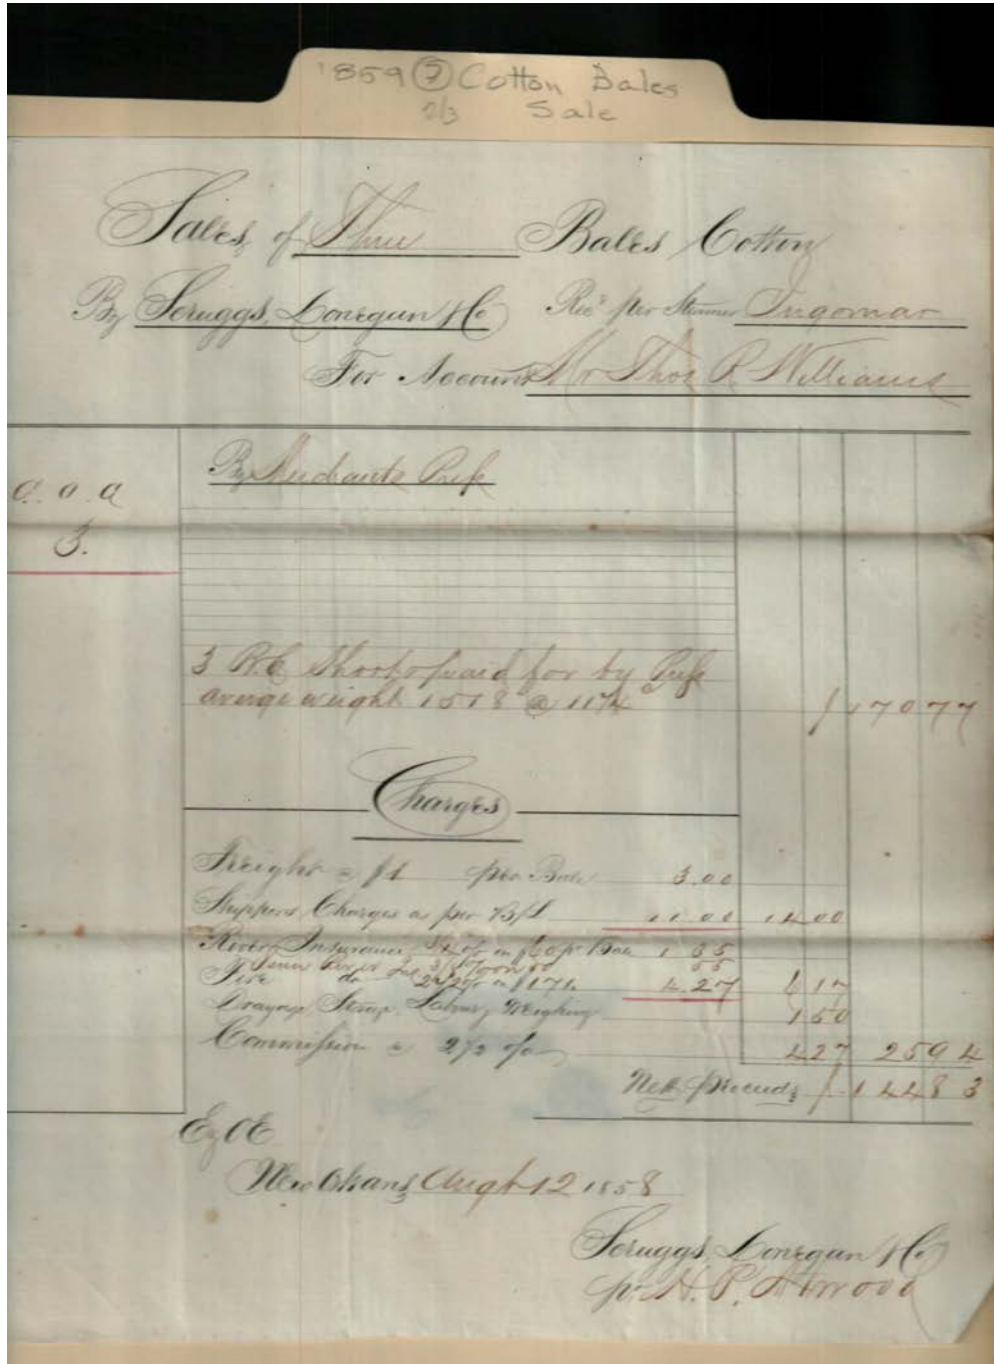 1859 (7) Cotton Bales
2/3 Sale
Sales of Three Bales Cotton
By Scruggs, Donegan & Co Rec'd per Steamer Ingomar
For Account Mr Thos P. Williams
By Merchants Press
3.
3 B.C. Short & paid for by Press
average weight 1518 @ 11¼ $170 77
Charges
Freight @ $1 per Bale 3.00
Shippers Charges as per B/L 11.00 14 00
River Insurance on $60 pr Bale 1 35
55
Fire do 2½ % on $171. 4.27 6 17
Drayage, Storage, Labor, Weighing 1 50
Commission @ 2½ % 4 27 25 94
Nett proceeds $144 83
E&OE
New Orleans, Augt 12 1858
Scruggs, Donegan & Co
pr. H. P. Atwood